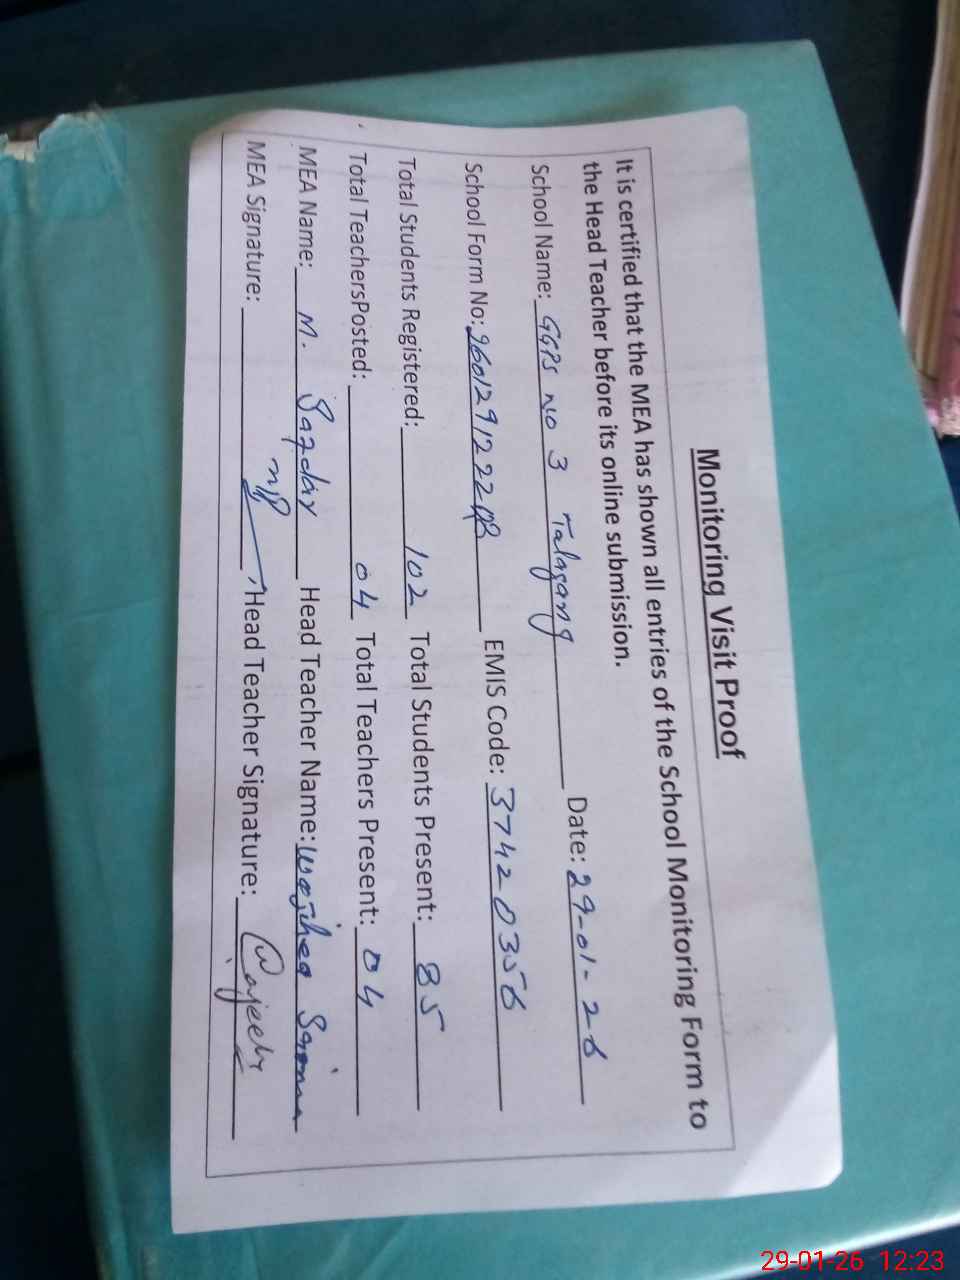 Monitoring Visit Proof
It is certified that the MEA has shown all entries of the School Monitoring Form to
the Head Teacher before its online submission.
School Name: GGPS NO 3 Talagang Date: 29-01-26
School Form No: EMIS Code: 37420356
Total Students Registered: 102 Total Students Present: 85
Total TeachersPosted: 04 Total Teachers Present: 04
MEA Name: M. Head Teacher Name: Wajiha
MEA Signature: Head Teacher Signature:
29-01-26 12:23